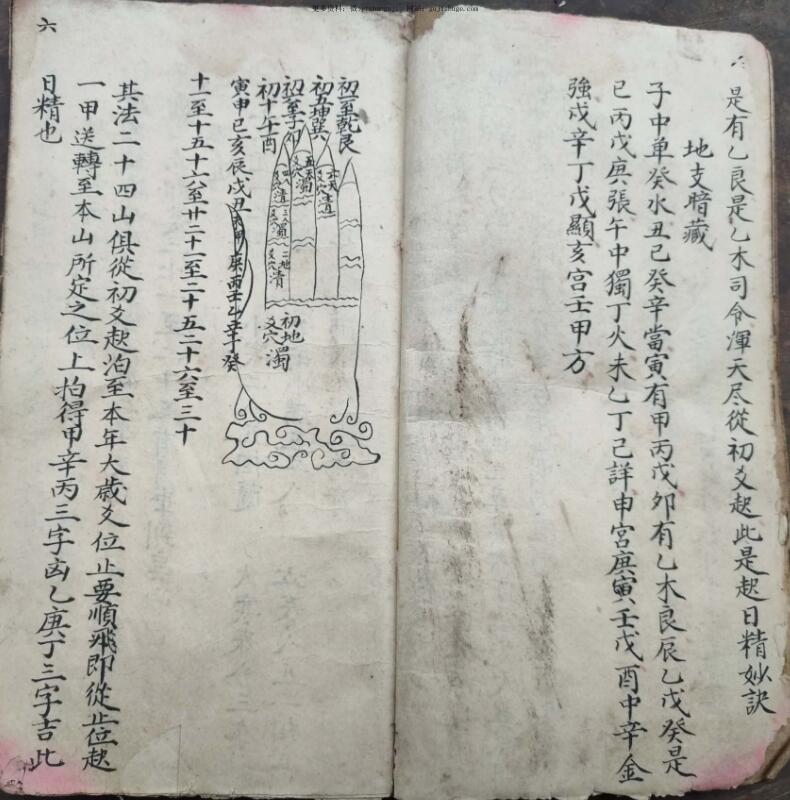 是有乙良是乙木司令渾天尽從初爻起此是起日精妙訣
地支暗藏
子中单癸水丑己癸辛當寅有甲丙戊夘有乙木良辰乙戊癸是
巳丙戊庚張午中獨丁火未乙丁己詳申宮庚寅壬戊酉中辛金
強戍辛丁戊顯亥宮壬甲方
六
初一至乾艮
初五坤巽
初六至子卯
初十午酉
寅申巳亥辰戌丑
庚丙壬乙辛丁癸
初地
爻穴濁
二地
爻穴清
十一至十五十六至廿二十一至二十五二十六至三十
其法二十四山俱從初爻起泊至本年大歲爻位止要順飛即從止位起
一甲送轉至本山所定之位上拍得甲辛丙三字凶乙庚丁三字吉此
日精也